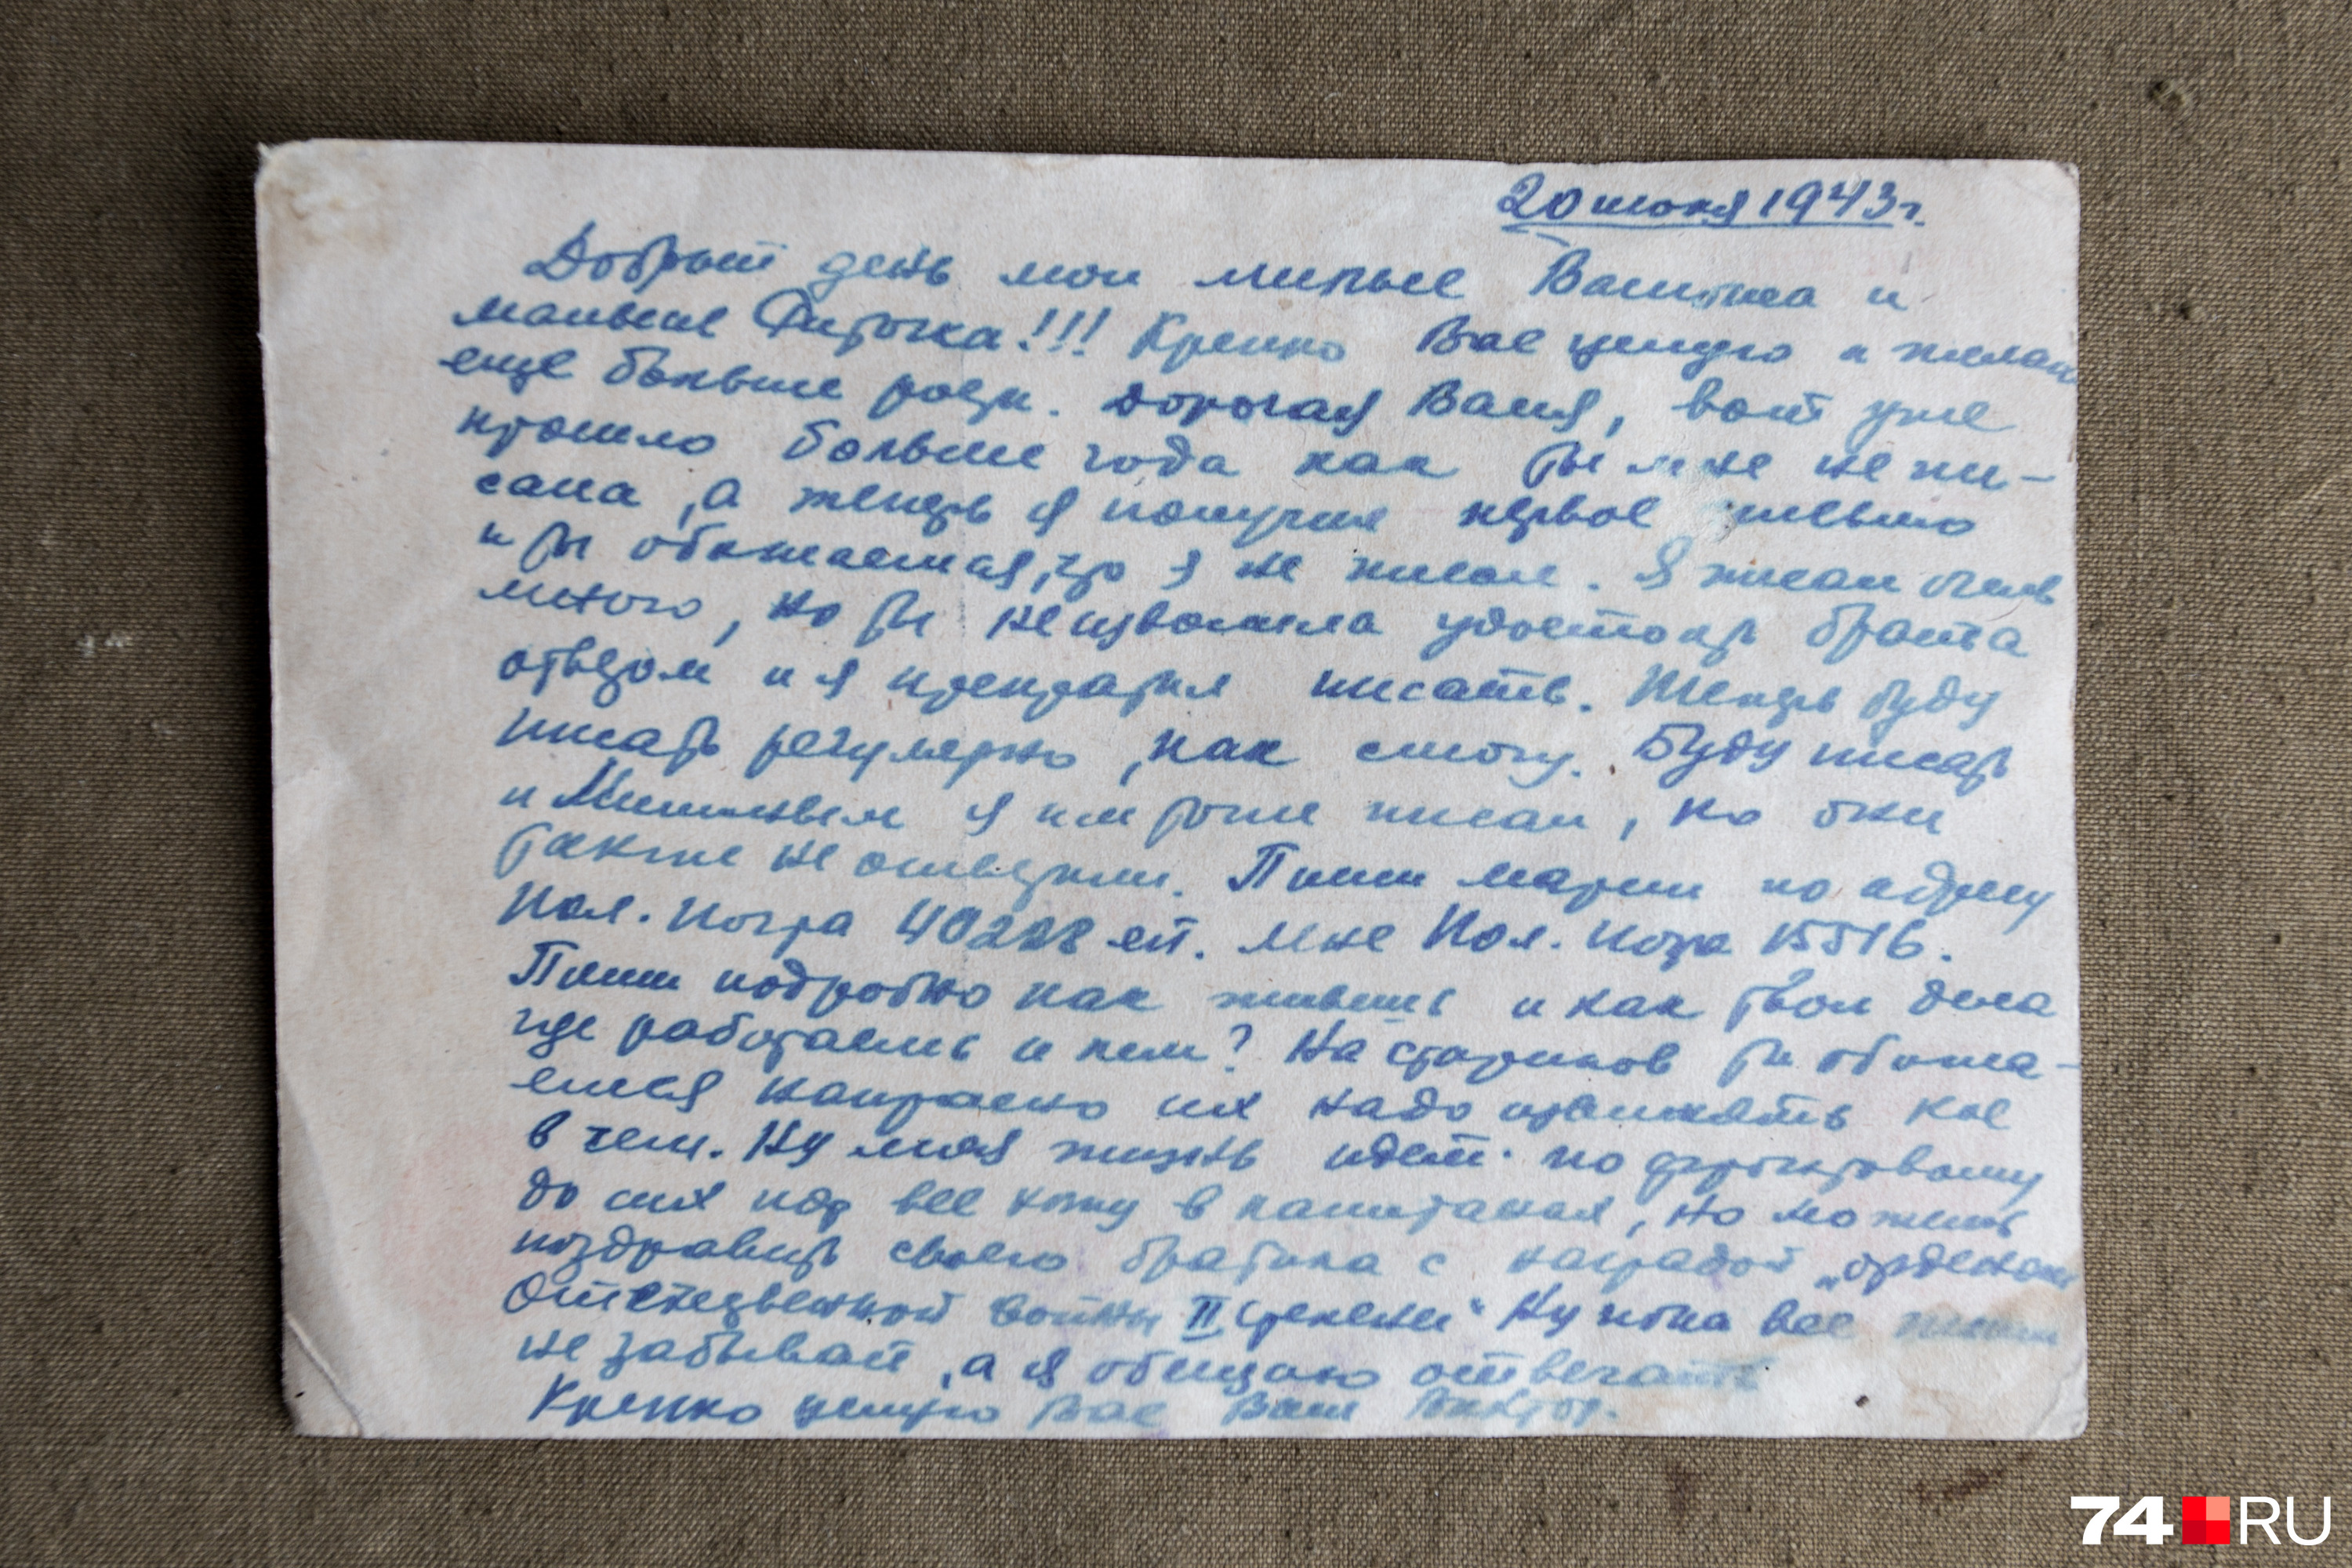 20 июня 1943 г.
Добрый день мои милые Валюша и
малышка !!! Крепко Вас целую и желаю
еще больше расти. Дорогая Валя, вот уже
прошло больше года как ты мне не пи-
сала, а теперь я получил первое письмо
и ты обижаешься, что я не писал. Я писал очень
много, но ты не изволила удостоить брата
ответом и я прекратил писать. Теперь буду
писать регулярно, как смогу. Буду писать
и я им тоже писал, но они
также не ответили. Пиши Марии по адресу
Пол. почта 40228 . Мне Пол. почта 15516.
Пиши подробно как живешь и как твои дела
где работаешь и кем? На стариков ты обижа-
ешься напрасно их надо извинять кое
в чем. Ну моя жизнь идет по фронтовому
до сих пор все хожу в капитанах, но можешь
поздравить своего братика с наградой „орденом
Отечественной войны II степени“ Ну пока все пиши
не забывай, а я обещаю отвечать
Крепко целую Вас Ваш Виктор.
74 RU